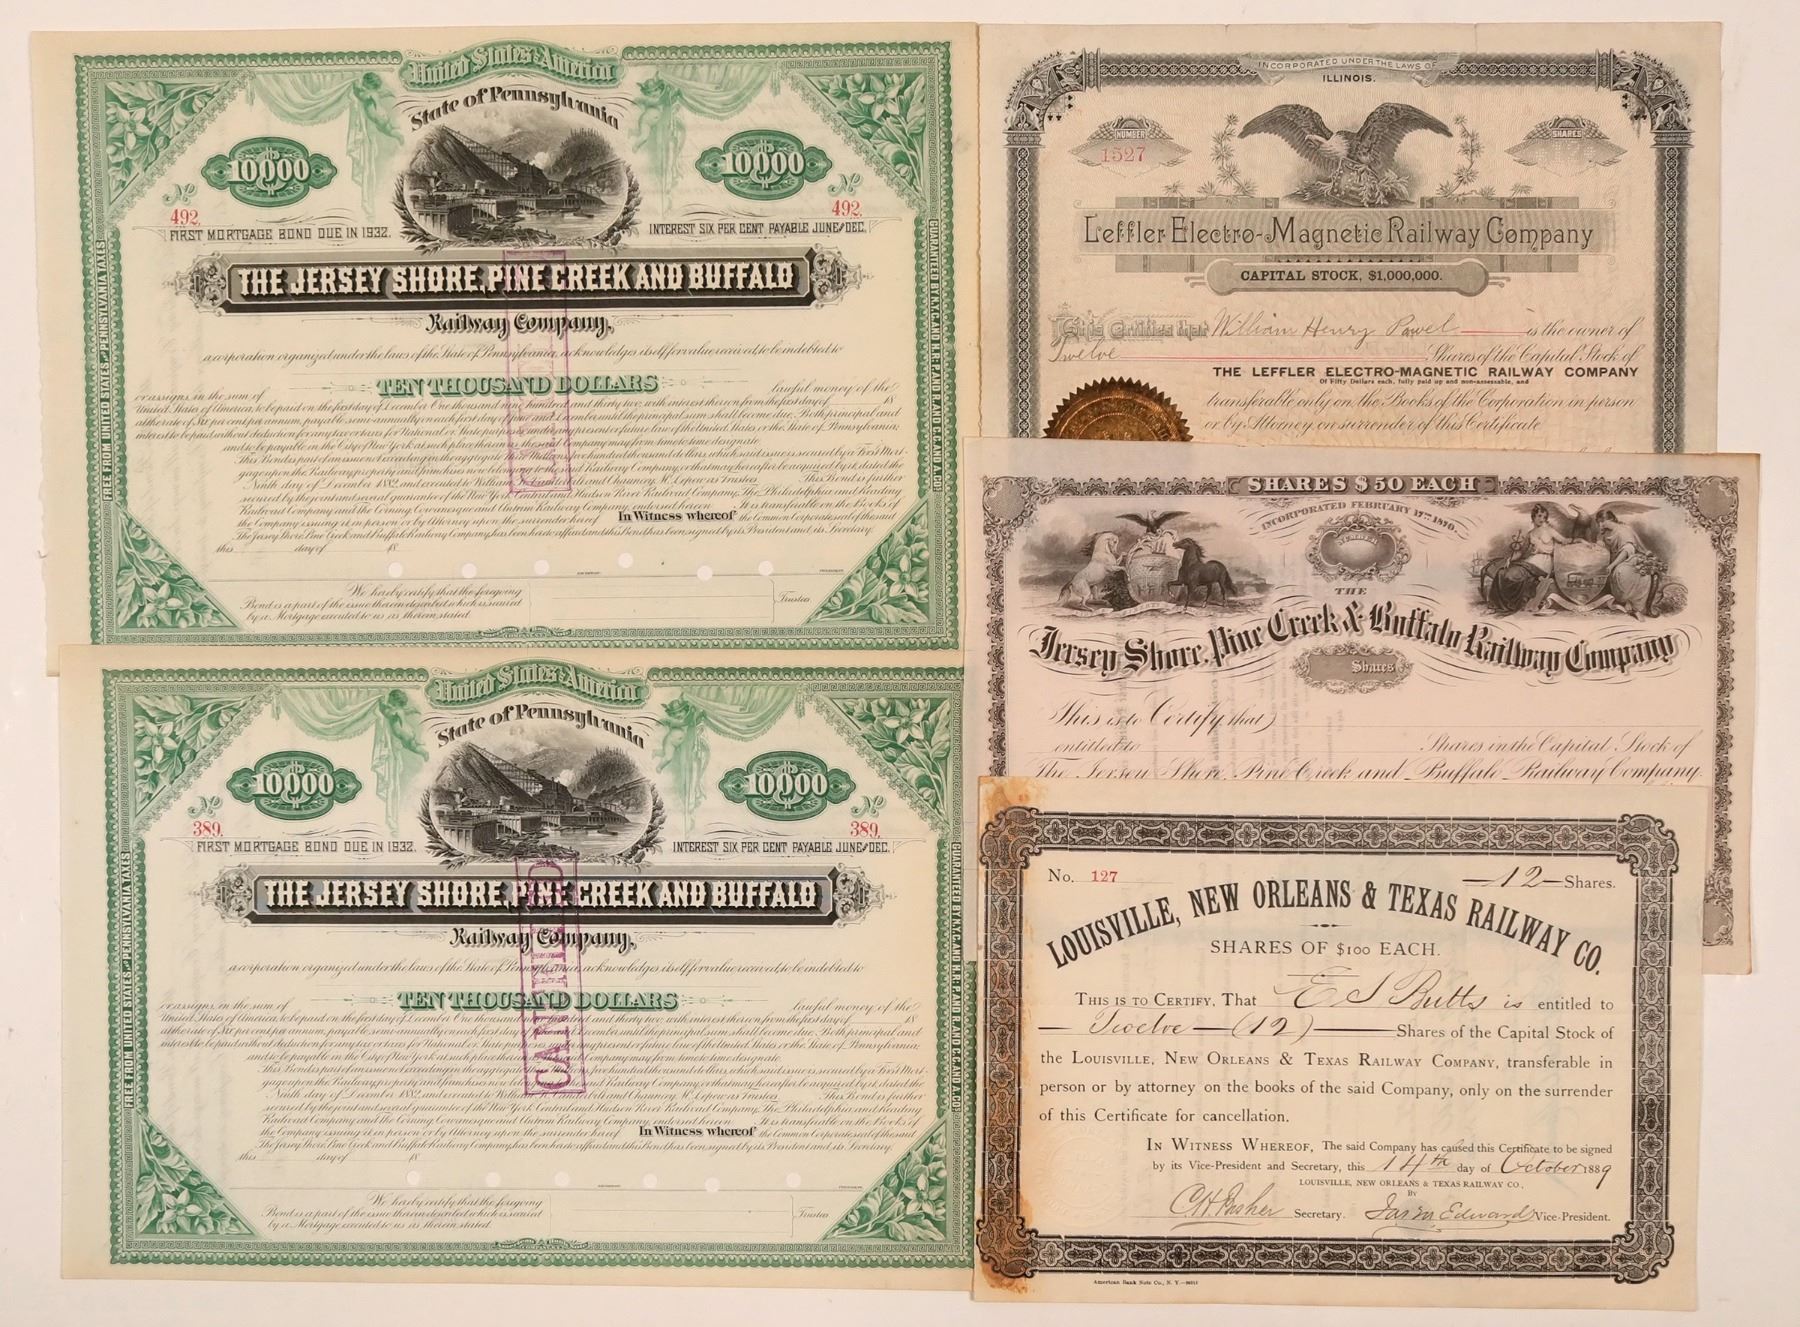 United States America
State of Pennsylvania
10000
10000
No
No
492.
492.
FIRST MORTGAGE BOND DUE IN 1932.
INTEREST SIX PER CENT PAYABLE JUNE & DEC.
THE JERSEY SHORE, PINE CREEK AND BUFFALO
Railway Company,
a corporation organized under the laws of the State of Pennsylvania, acknowledges itself for value received, to be indebted to
or assigns in the sum of TEN THOUSAND DOLLARS lawful money of the
United States of America, to be paid on the first day of December One thousand nine hundred and thirty two, with interest thereon from the first day of 18
at the rate of Six per cent per annum, payable semi-annually on each first day of June and December until the principal sum shall become due. Both principal and
interest to be paid without deduction for any tax or taxes for National or State purposes under any present or future law of the United States or the State of Pennsylvania;
and to be payable in the City of New York at such place therein as the said Company may from time to time designate.
This Bond is part of an issue not exceeding in the aggregate Three Millions, five hundred thousand dollars, which said issue is secured by a First Mort-
gage upon the Railway, property and franchises now belonging to the said Railway Company, or that may hereafter be acquired by it, dated the
Ninth day of December 1882, and executed to William and Chauncey M. Depew as Trustees. This Bond is further
secured by the joint and several guarantee of the New York Central and Hudson River Railroad Company, The Philadelphia and Reading
Railroad Company and the Corning Cowanesque and Antrim Railway Company, endorsed hereon. It is transferable on the Books of
the Company issuing it in person or by Attorney upon the surrender hereof. In Witness whereof the Common Corporate seal of the said
The Jersey Shore, Pine Creek and Buffalo Railway Company, has been hereto affixed and this Bond has been signed by its President and its Secretary,
this day of 18
We hereby certify that the foregoing
Bond is a part of the issue therein described which is secured
by a Mortgage executed to us as therein stated.
Trustees
FREE FROM UNITED STATES AND PENNSYLVANIA TAXES
GUARANTEED BY N.Y.C. AND H.R.R. P. AND R. AND C.C. AND A. CO'S
United States America
State of Pennsylvania
10000
10000
No
No
389.
389.
FIRST MORTGAGE BOND DUE IN 1932.
INTEREST SIX PER CENT PAYABLE JUNE & DEC.
THE JERSEY SHORE, PINE CREEK AND BUFFALO
Railway Company,
CANCELLED
a corporation organized under the laws of the State of Pennsylvania, acknowledges itself for value received, to be indebted to
or assigns in the sum of TEN THOUSAND DOLLARS lawful money of the
United States of America, to be paid on the first day of December One thousand nine hundred and thirty two, with interest thereon from the first day of 18
at the rate of Six per cent per annum, payable semi-annually on each first day of June and December until the principal sum shall become due. Both principal and
interest to be paid without deduction for any tax or taxes for National or State purposes under any present or future law of the United States or the State of Pennsylvania;
and to be payable in the City of New York at such place therein as the said Company may from time to time designate.
This Bond is part of an issue not exceeding in the aggregate Three Millions, five hundred thousand dollars, which said issue is secured by a First Mort-
gage upon the Railway, property and franchises now belonging to the said Railway Company, or that may hereafter be acquired by it, dated the
Ninth day of December 1882, and executed to William and Chauncey M. Depew as Trustees. This Bond is further
secured by the joint and several guarantee of the New York Central and Hudson River Railroad Company, The Philadelphia and Reading
Railroad Company and the Corning Cowanesque and Antrim Railway Company, endorsed hereon. It is transferable on the Books of
the Company issuing it in person or by Attorney upon the surrender hereof. In Witness whereof the Common Corporate seal of the said
The Jersey Shore, Pine Creek and Buffalo Railway Company, has been hereto affixed and this Bond has been signed by its President and its Secretary,
this day of 18
We hereby certify that the foregoing
Bond is a part of the issue therein described which is secured
by a Mortgage executed to us as therein stated.
Trustees
FREE FROM UNITED STATES AND PENNSYLVANIA TAXES
GUARANTEED BY N.Y.C. AND H.R.R. P. AND R. AND C.C. AND A. CO'S
INCORPORATED UNDER THE LAWS OF
ILLINOIS.
NUMBER
1527
SHARES
Leffler Electro-Magnetic Railway Company
CAPITAL STOCK, $1,000,000.
This Certifies that William Henry Powel is the owner of
Twelve Shares of the Capital Stock of
THE LEFFLER ELECTRO-MAGNETIC RAILWAY COMPANY
Of Fifty Dollars each, fully paid up and non-assessable, and
transferable only on the Books of the Corporation in person
or by Attorney on surrender of this Certificate
SHARES $50 EACH
INCORPORATED FEBRUARY 17TH 1870.
NUMBER
THE
Jersey Shore, Pine Creek & Buffalo Railway Company
Shares
This is to Certify that
entitled to Shares in the Capital Stock of
The Jersey Shore, Pine Creek and Buffalo Railway Company.
No. 127
12 Shares.
LOUISVILLE, NEW ORLEANS & TEXAS RAILWAY CO.
SHARES OF $100 EACH.
THIS IS TO CERTIFY, That E S Butts is entitled to
Twelve (12) Shares of the Capital Stock of
the LOUISVILLE, NEW ORLEANS & TEXAS RAILWAY COMPANY, transferable in
person or by attorney on the books of the said Company, only on the surrender
of this Certificate for cancellation.
IN WITNESS WHEREOF, The said Company has caused this Certificate to be signed
by its Vice-President and Secretary, this 14th day of October 1889
LOUISVILLE, NEW ORLEANS & TEXAS RAILWAY CO.,
BY
Secretary. Edwards Vice-President.
American Bank Note Co., N. Y.